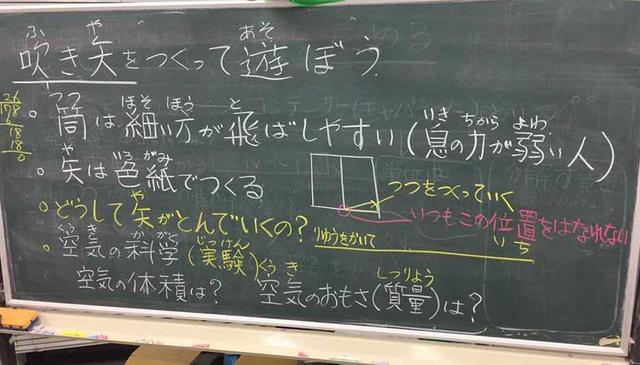 吹き矢をつくって遊ぼう
ふ や あそ
つつ ほそ ほう と いき ちから よわ
筒は細い方が飛ばしやすい(息の力が弱い人)
や いろ がみ
矢は色紙でつくる
つつをつくっていく
いつもこの位置をはなれない
いち
や
どうして矢がとんでいくの?
りゆうをかいて
くうき かがく じっけん
空気の科学(実験)
くうき しつりょう
空気の体積は? 空気のおもさ(質量)は?
78
18
18
0